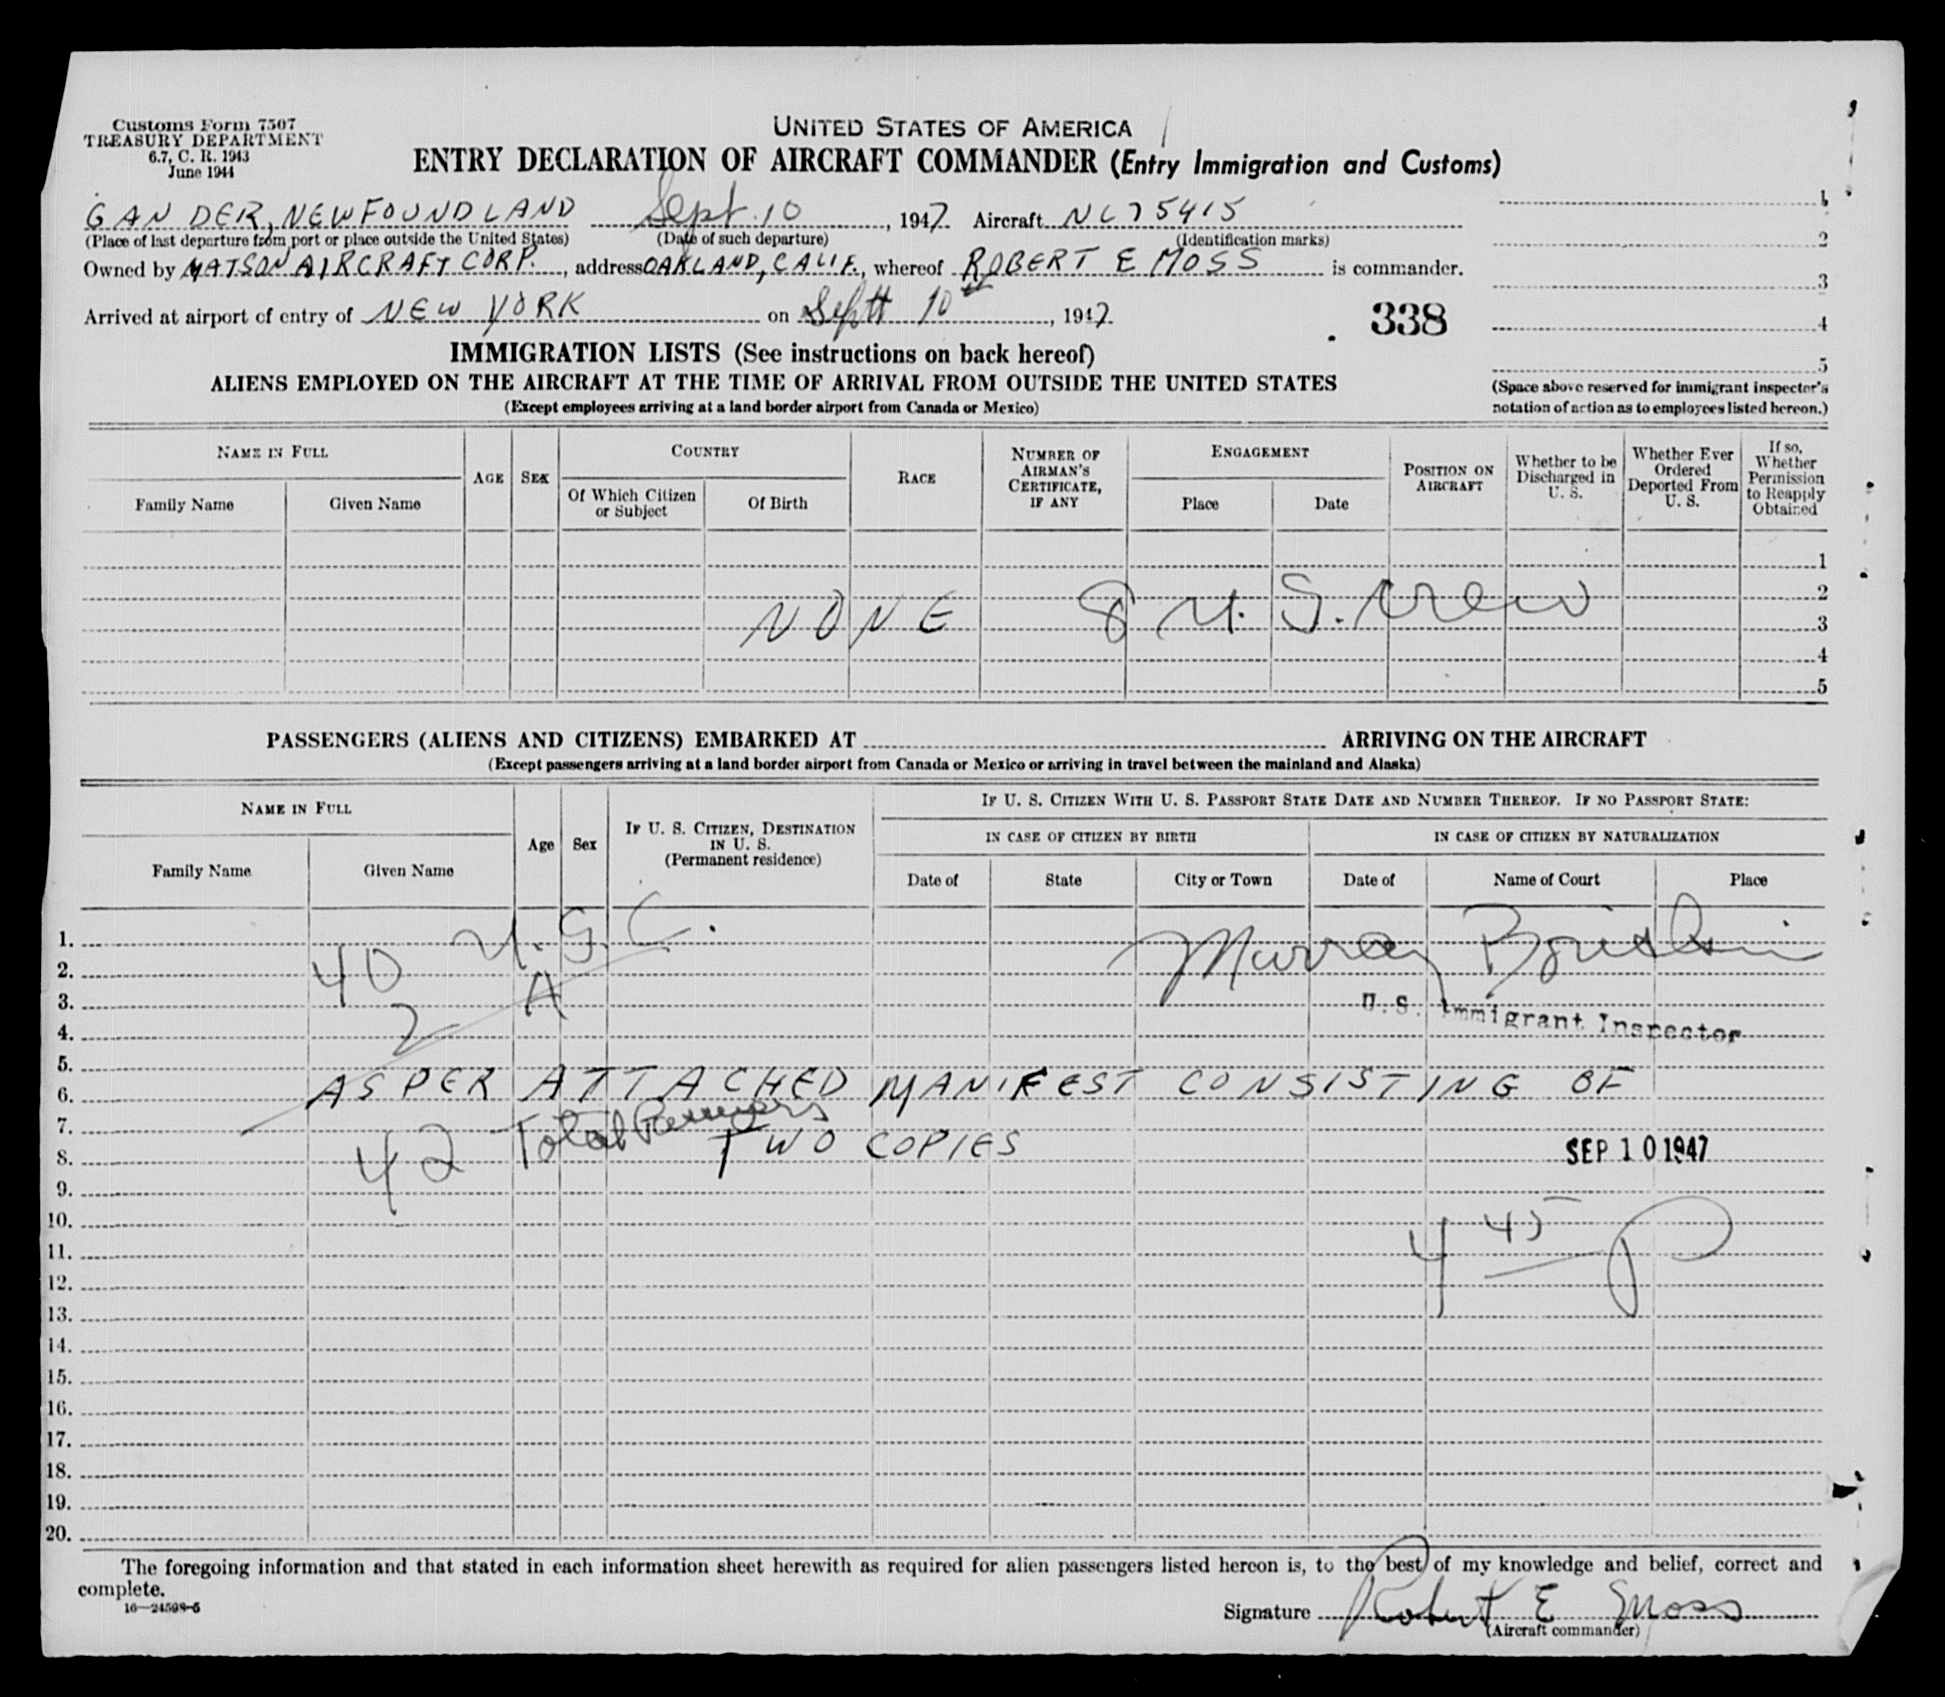 Customs Form 7507
TREASURY DEPARTMENT
6.7, C. R. 1943
June 1944
UNITED STATES OF AMERICA
ENTRY DECLARATION OF AIRCRAFT COMMANDER (Entry Immigration and Customs)
GANDER, NEWFOUNDLAND Sept. 10, 1947 Aircraft NC75415 1
(Place of last departure from port or place outside the United States) (Date of such departure) (Identification marks) 2
Owned by MATSON AIRCRAFT CORP., address OAKLAND, CALIF., whereof ROBERT E MOSS is commander. 3
Arrived at airport of entry of NEW YORK on Sept 10th, 1947 338 4
IMMIGRATION LISTS (See instructions on back hereof) 5
ALIENS EMPLOYED ON THE AIRCRAFT AT THE TIME OF ARRIVAL FROM OUTSIDE THE UNITED STATES
(Except employees arriving at a land border airport from Canada or Mexico)
(Space above reserved for immigrant inspector's
notation of action as to employees listed hereon.)
NAME IN FULL
Family Name
Given Name
AGE
SEX
COUNTRY
Of Which Citizen
or Subject
Of Birth
RACE
NUMBER OF
AIRMAN'S
CERTIFICATE,
IF ANY
ENGAGEMENT
Place
Date
POSITION ON
AIRCRAFT
Whether to be
Discharged in
U. S.
Whether Ever
Ordered
Deported From
U. S.
If so,
Whether
Permission
to Reapply
Obtained
1
2
NONE 8 U. S. Crew 3
4
5
PASSENGERS (ALIENS AND CITIZENS) EMBARKED AT ARRIVING ON THE AIRCRAFT
(Except passengers arriving at a land border airport from Canada or Mexico or arriving in travel between the mainland and Alaska)
NAME IN FULL
Family Name
Given Name
Age
Sex
IF U. S. CITIZEN, DESTINATION
IN U. S.
(Permanent residence)
IF U. S. CITIZEN WITH U. S. PASSPORT STATE DATE AND NUMBER THEREOF. IF NO PASSPORT STATE:
IN CASE OF CITIZEN BY BIRTH
Date of
State
City or Town
IN CASE OF CITIZEN BY NATURALIZATION
Date of
Name of Court
Place
1.
2. 40 U.S.C. Murray
3. 2 A U.S. Immigrant Inspector
4.
5.
6. AS PER ATTACHED MANIFEST CONSISTING OF
7.
8. 42 Total TWO COPIES SEP 10 1947
9.
10.
11. 4 45 P
12.
13.
14.
15.
16.
17.
18.
19.
20.
The foregoing information and that stated in each information sheet herewith as required for alien passengers listed hereon is, to the best of my knowledge and belief, correct and
complete.
16—24598-5
Signature Robert E Moss
(Aircraft commander)